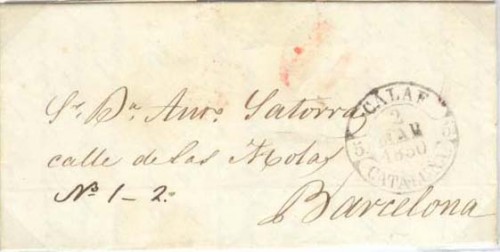 Sr. Dn. Anto. Satorra
calle de las Molas
Nos 1-2.
Barcelona
CALAF
2
MAR
1850
CATALUÑA